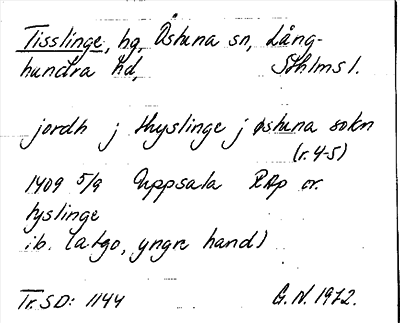 Tisslinge, hg, Östuna sn, Lång-
hundra hd, Sthlms l.
jordh j thyslinge j østuna sokn
(r. 4-5)
1409 5/9 Uppsala RAp or.
tyslinge
ib. (atgo, yngre hand)
Tr. SD: 1144 G.N. 1972.